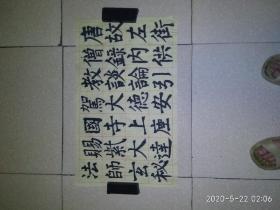 唐故左街
僧錄內供
教談論引
駕大德安
國寺上座
賜紫大達
法師玄秘
2020-5-22 02:06